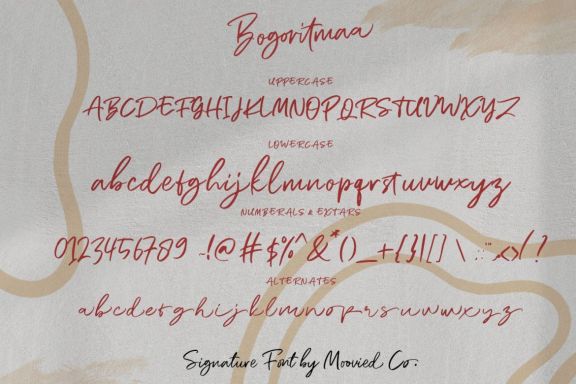 Bogoritmaa
UPPERCASE
ABCDEFGHIJKLMNOPQRSTUVWXYZ
LOWERCASE
abcdefghijklmnopqrstuvwxyz
NUMBERALS & EXTARS
0123456789 ~!@#$%^&*()_+{}|[]\:;"',.<>/?
ALTERNATES
abcdefghijklmnoprsuvwxyz
Signature Font by Moovied Co.